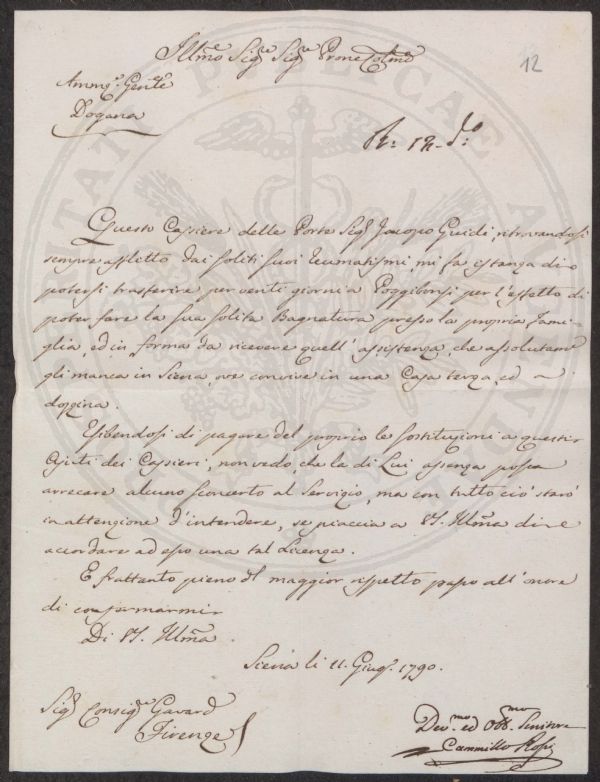 Illmo Sigre Sigre Prone Colmo
12
Ammne Genle
Dogana
Questo Cassiere delle Porte Sigr Jacopo Guidi, ritrovandosi
sempre affetto dai soliti suoi reumatismi, mi fa istanza di
potersi trasferire per venti giorni a Poggibonsi per l'effetto di
poter fare la sua solita Bagnatura presso la propria Fami-
glia, ed in forma da ricevere quell'assistenza, che assolutame
gli manca in Siena, ove convive in una Casa terza, ed a
dozzina.
Esibendosi di pagare del proprio le sostituzioni a questi
Ajuti dei Cassieri, non vedo, che la di Lui assenza possa
arrecare alcuno sconcerto al Servizio, ma con tutto ciò starò
in attenzione d'intendere, se piaccia a VS. Illma di
accordare ad esso una tal Licenza.
E frattanto pieno del maggior rispetto passo all'onore
di confermarmi
Di VS. Illma
Siena li 11. Giugo 1790.
Sigr Consigre Gavard
Firenze
Devmo ed Obbmo Servitore
Cammillo Rossi
PUBLICAE